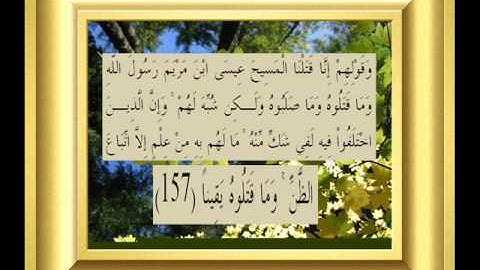 وَقَوْلِهِمْ إِنَّا قَتَلْنَا الْمَسِيحَ عِيسَى ابْنَ مَرْيَمَ رَسُولَ اللَّهِ
وَمَا قَتَلُوهُ وَمَا صَلَبُوهُ وَلَـكِن شُبِّهَ لَهُمْ ۚ وَإِنَّ الَّذِيـنَ
اخْتَلَفُواْ فِيهِ لَفِي شَكٍّ مِّنْهُ ۚ مَا لَهُم بِهِ مِنْ عِلْمٍ إِلَّا اتِّبَاعَ
الظَّنِّ ۚ وَمَا قَتَلُوهُ يَقِيناً (157)